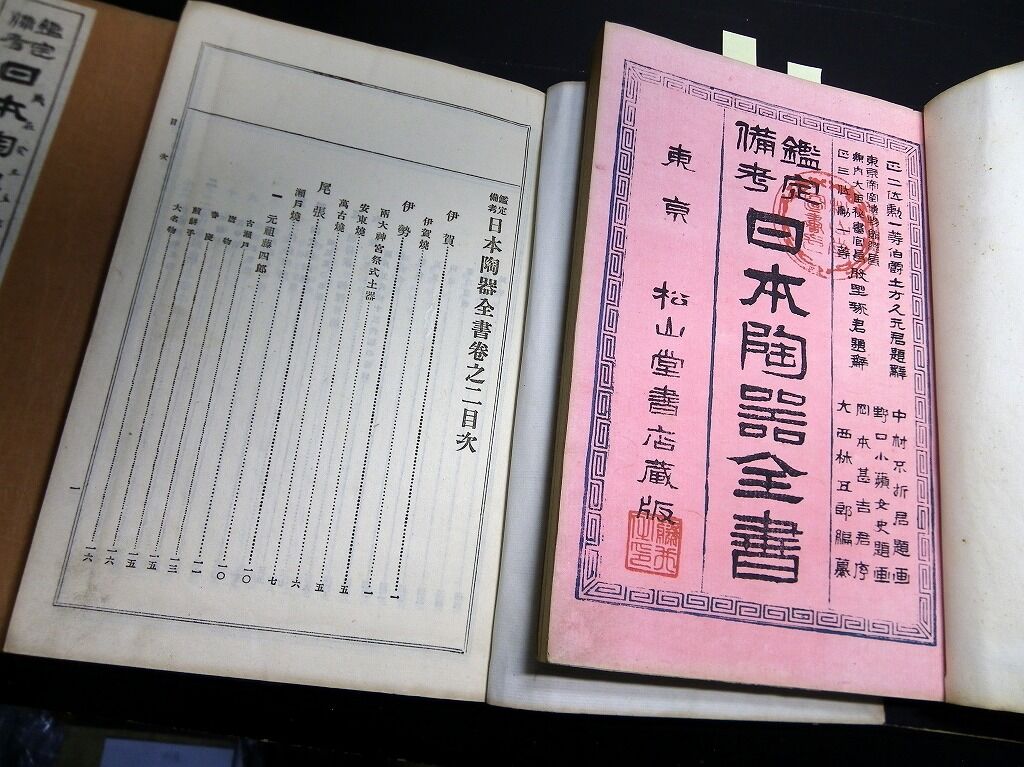 正二位勲一等伯爵土方久元君題辭
東京帝室博物館総長
兼内大臣秘書官長股野琢君題辭
正三位勲一等
中村不折君題画
野口小蘋女史題画
岡本甚吉君序
大西林五郎編纂
鑑定
備考
日本陶器全書
東京 松山堂書店蔵版
鑑定
備考
日本陶器全書卷之二目次
伊賀 一
伊賀燒 一
伊勢 五
兩大神宮祭式土器 五
安東燒 六
萬古燒 七
尾張 一〇
瀬戸燒 一〇
一 元祖藤四郎 一一
古瀬戸 一三
唐物 一五
春慶 一五
煎餅手 一六
大名物 一六
目次
一
鑑定
備考
日本陶